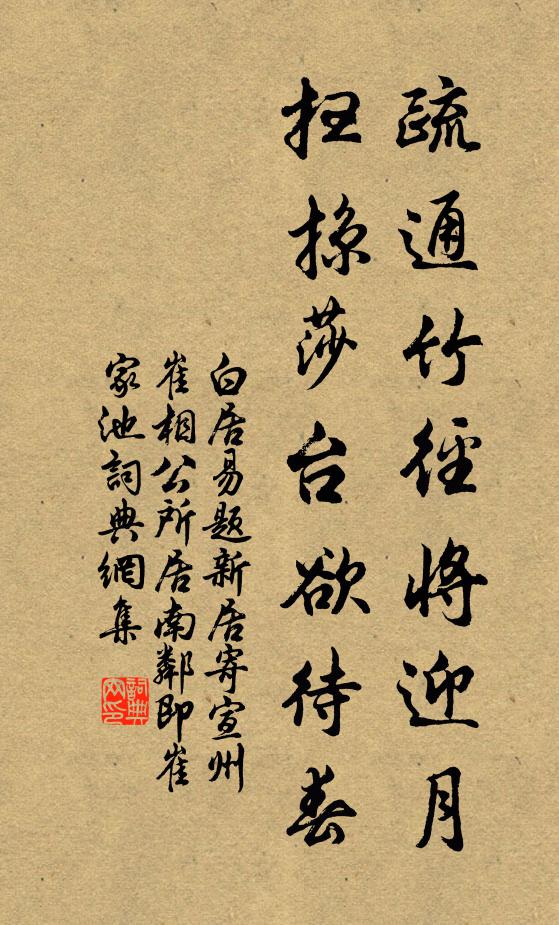 疏通竹徑將迎月
掃掠莎台欲待春
白居易题新居寄宣州
崔相公所居南鄰即崔
家池詞典網集
詞典网印